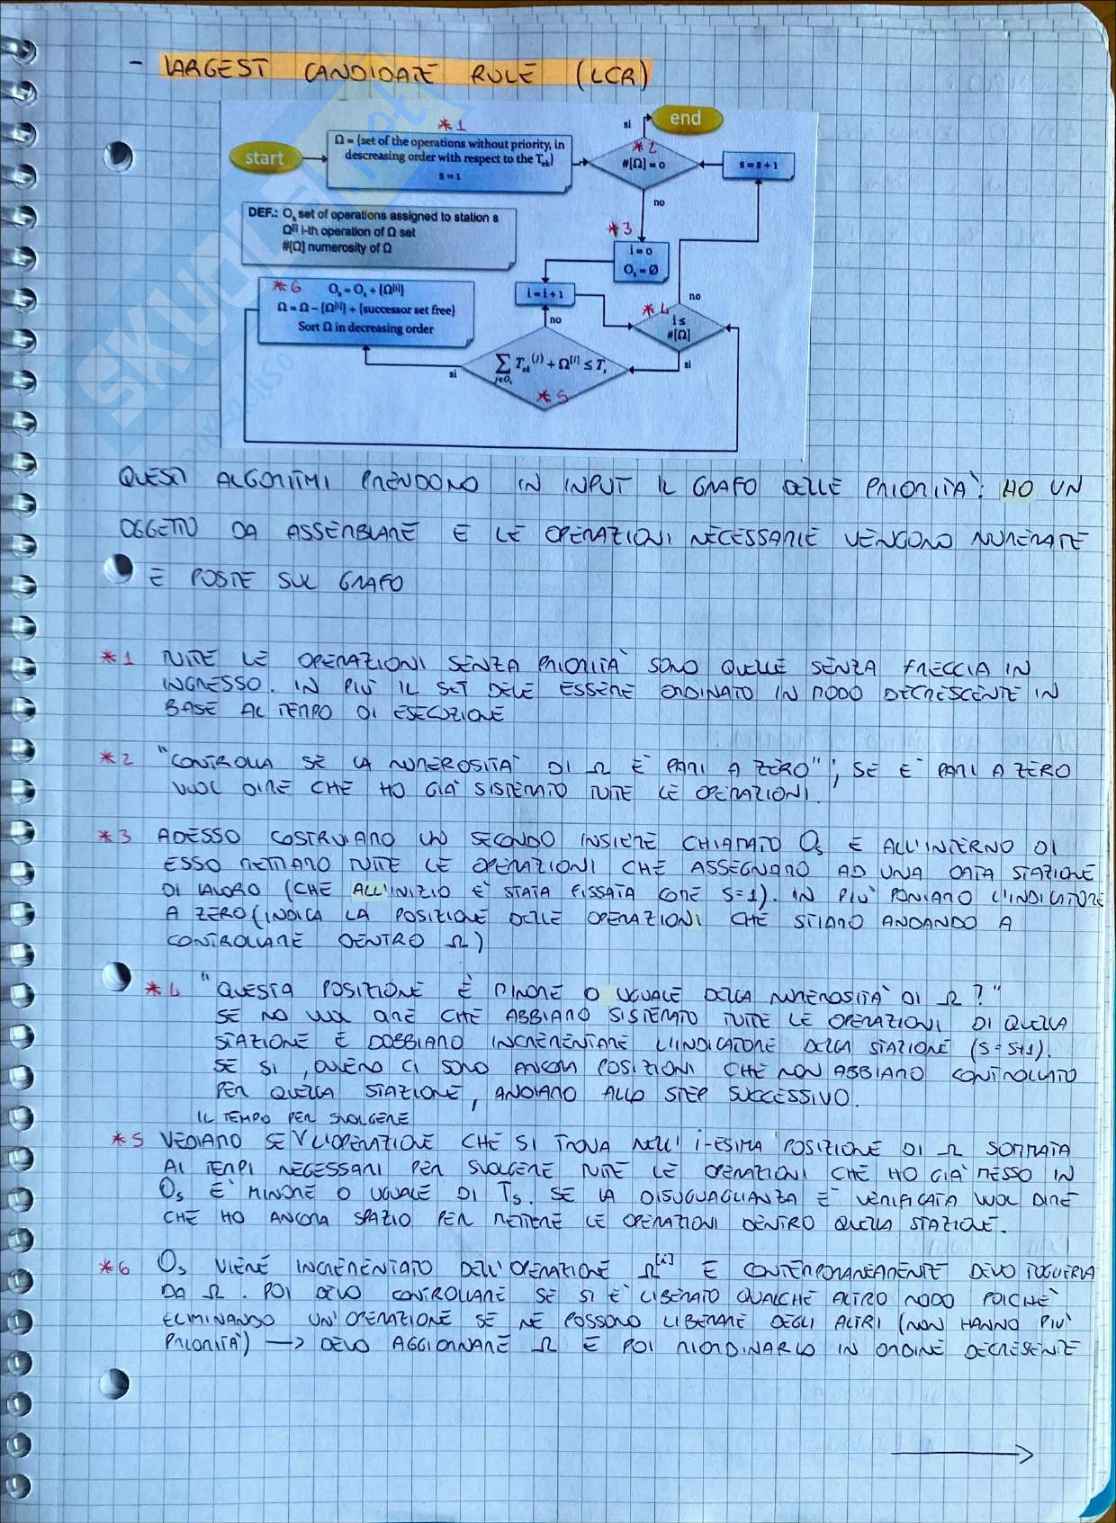 - LARGEST CANDIDATE RULE (LCR)
*1
start
Ω = {set of the operations without priority, in
descreasing order with respect to the Tek}
s = 1
si
end
*2
#[Ω] = 0
s = s + 1
no
DEF.: Os set of operations assigned to station s
Ω[i] i-th operation of Ω set
#[Ω] numerosity of Ω
*3
i = 0
Os = Ø
*6 Os = Os + {Ω[i]}
Ω = Ω – {Ω[i]} + {successor set free}
Sort Ω in decreasing order
i = i + 1
no
*4
i ≤
#[Ω]
no
si
∑ j∈Os Tek(j) + Ω[i] ≤ Ts
*5
si
QUESTI ALGORITMI PRENDONO IN INPUT IL GRAFO DELLE PRIORITÀ: HO UN
OGGETTO DA ASSEMBLARE E LE OPERAZIONI NECESSARIE VENGONO NUMERATE
E POSTE SUL GRAFO
*1 TUTTE LE OPERAZIONI SENZA PRIORITÀ SONO QUELLE SENZA FRECCIA IN
INGRESSO. IN PIÙ IL SET DEVE ESSERE ORDINATO IN MODO DECRESCENTE IN
BASE AL TEMPO DI ESECUZIONE
*2 "CONTROLLA SE LA NUMEROSITÀ DI Ω È PARI A ZERO"; SE È PARI A ZERO
VUOL DIRE CHE HO GIÀ SISTEMATO TUTTE LE OPERAZIONI.
*3 ADESSO COSTRUIAMO UN SECONDO INSIEME CHIAMATO Os E ALL'INTERNO DI
ESSO METTIAMO TUTTE LE OPERAZIONI CHE ASSEGNAMO AD UNA DATA STAZIONE
DI LAVORO (CHE ALL'INIZIO È STATA FISSATA COME S=1). IN PIÙ PONIAMO L'INDICATORE
A ZERO (INDICA LA POSIZIONE DELLE OPERAZIONI CHE STIAMO ANDANDO A
CONTROLLARE DENTRO Ω)
*4 "QUESTA POSIZIONE È MINORE O UGUALE DELLA NUMEROSITÀ DI Ω?"
SE NO VUOL DIRE CHE ABBIAMO SISTEMATO TUTTE LE OPERAZIONI DI QUELLA
STAZIONE E DOBBIAMO INCREMENTARE L'INDICATORE DELLA STAZIONE (S=S+1).
SE SI, OVVERO CI SONO ANCORA POSIZIONI CHE NON ABBIAMO CONTROLLATO
PER QUELLA STAZIONE, ANDIAMO ALLO STEP SUCCESSIVO.
IL TEMPO PER SVOLGERE
*5 VEDIAMO SE L'OPERAZIONE CHE SI TROVA NELL' i-ESIMA POSIZIONE DI Ω SOMMATA
AI TEMPI NECESSARI PER SVOLGERE TUTTE LE OPERAZIONI CHE HO GIÀ MESSO IN
Os È MINORE O UGUALE DI Ts. SE LA DISUGUAGLIANZA È VERIFICATA VUOL DIRE
CHE HO ANCORA SPAZIO PER METTERE LE OPERAZIONI DENTRO QUELLA STAZIONE.
*6 Os VIENE INCREMENTATO DELL'OPERAZIONE Ω[i] E CONTEMPORANEAMENTE DEVO TOGLIERLA
DA Ω. POI DEVO CONTROLLARE SE SI È LIBERATO QUALCHE ALTRO NODO POICHÈ
ELIMINANDO UN'OPERAZIONE SE NE POSSONO LIBERARE DEGLI ALTRI (NON HANNO PIÙ
PRIORITÀ) → DEVO AGGIORNARE Ω E POI RIORDINARLO IN ORDINE DECRESENTE